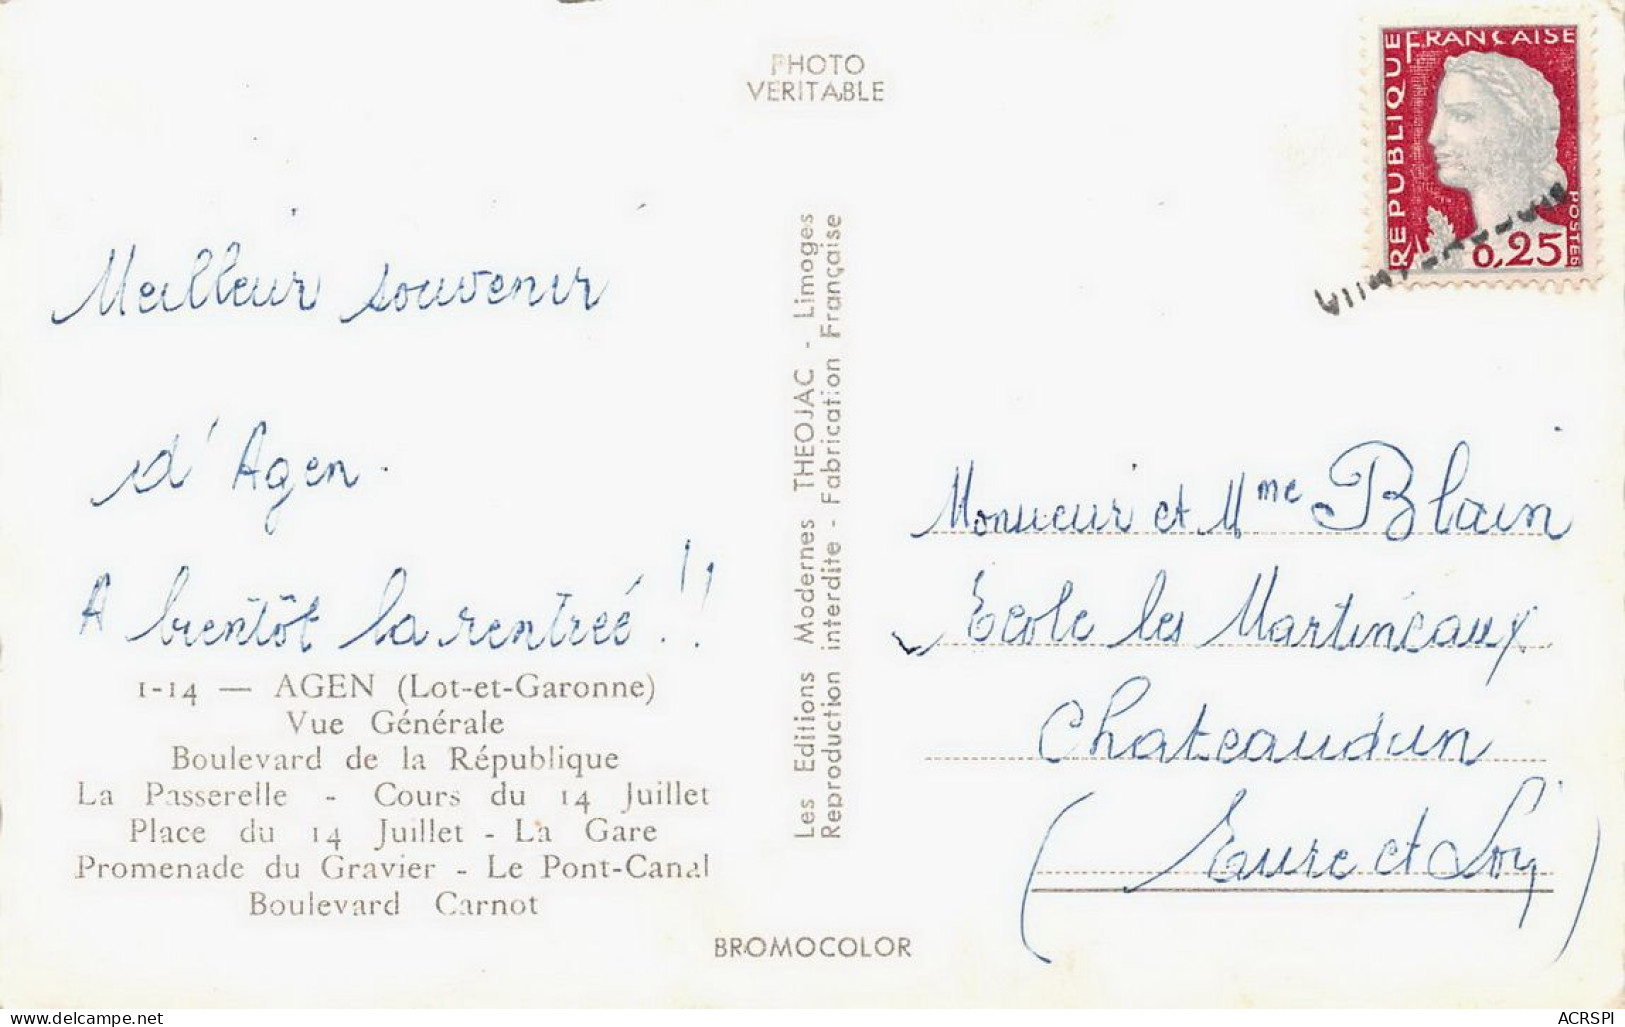 PHOTO
VERITABLE
REPUBLIQUE FRANÇAISE
POSTES
0,25
Meilleur souvenir
d'Agen.
A bientôt la rentrée !!
1-14 — AGEN (Lot-et-Garonne)
Vue Générale
Boulevard de la République
La Passerelle - Cours du 14 Juillet
Place du 14 Juillet - La Gare
Promenade du Gravier - Le Pont-Canal
Boulevard Carnot
BROMOCOLOR
Les Editions Modernes THEOJAC - Limoges
Reproduction interdite - Fabrication Française
Monsieur et Mme Blain
Ecole les Martineaux
Chateaudun
(Eure et Loir)
www.delcampe.net
ACRSPI